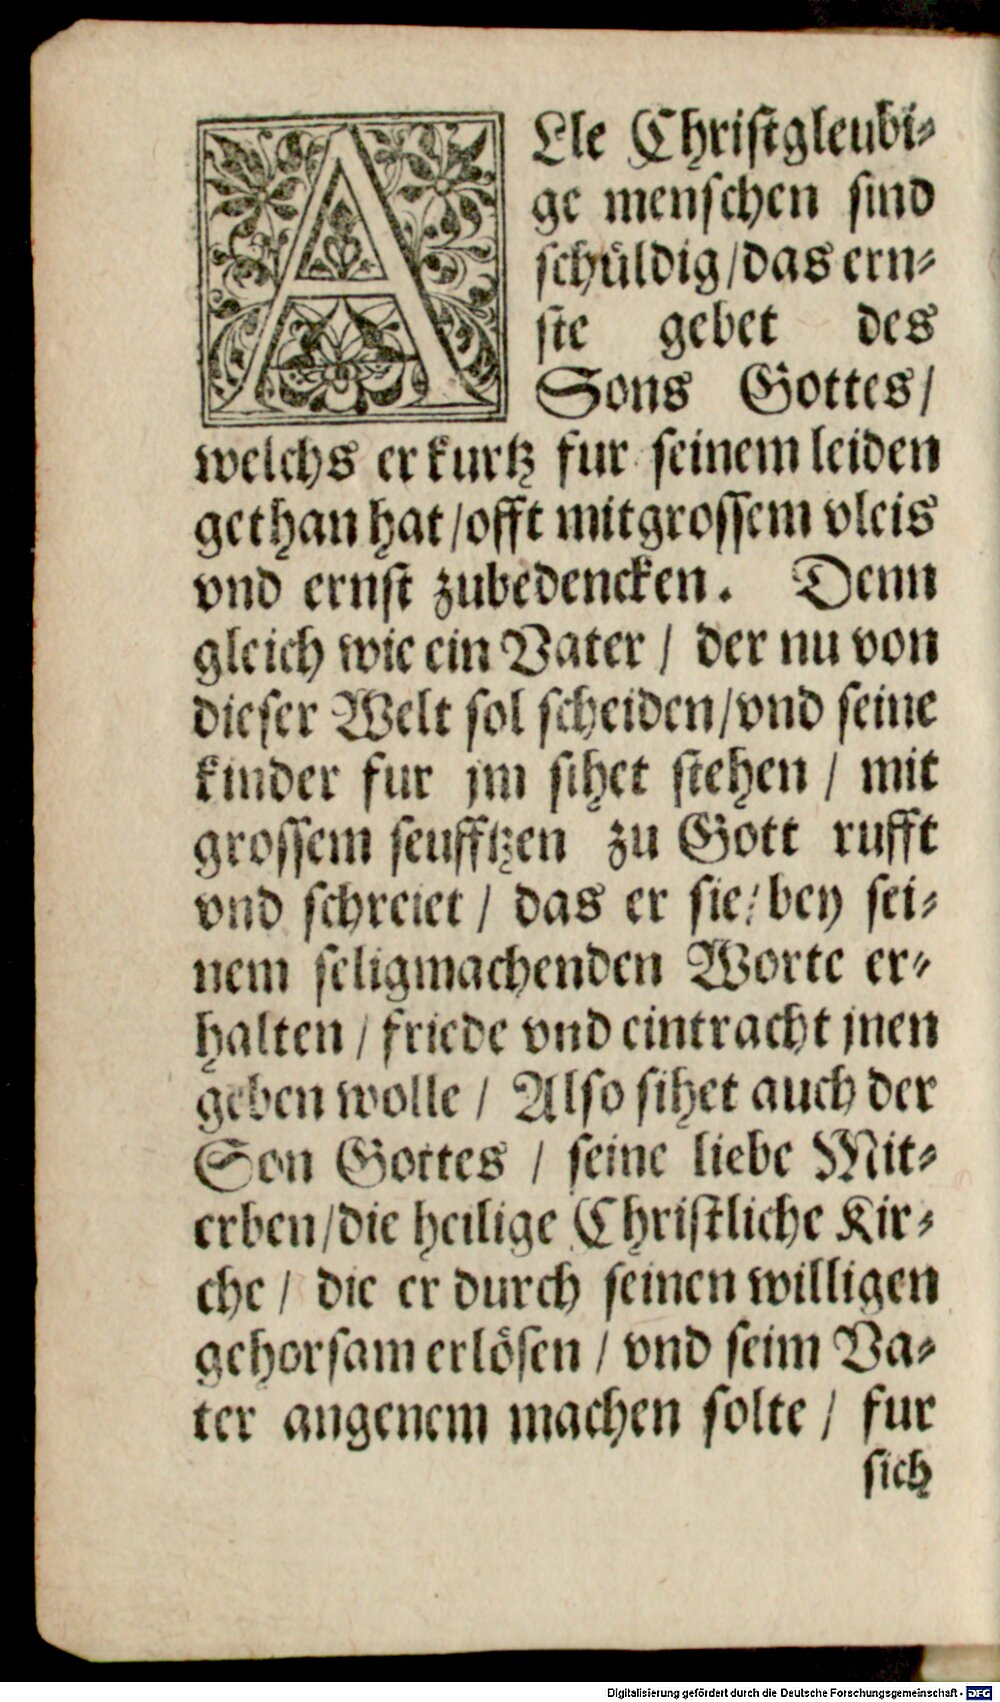 ALle Christgleubi-
ge menschen sind
schüldig/das ern-
ste gebet des
Sons Gottes/
welchs er kurtz fur seinem leiden
gethan hat/offt mit grossem vleis
vnd ernst zubedencken. Denn
gleich wie ein Vater / der nu von
dieser Welt sol scheiden/vnd seine
kinder fur jm sihet stehen / mit
grossem seufftzen zu Gott rufft
vnd schreiet / das er sie/bey sei-
nem seligmachenden Worte er-
halten / friede vnd eintracht jnen
geben wolle / Also sihet auch der
Son Gottes / seine liebe Mit-
erben/die heilige Christliche Kir-
che / die er durch seinen willigen
gehorsam erlösen / vnd seim Va-
ter angenem machen solte / fur
sich
Digitalisierung gefördert durch die Deutsche Forschungsgemeinschaft - DFG